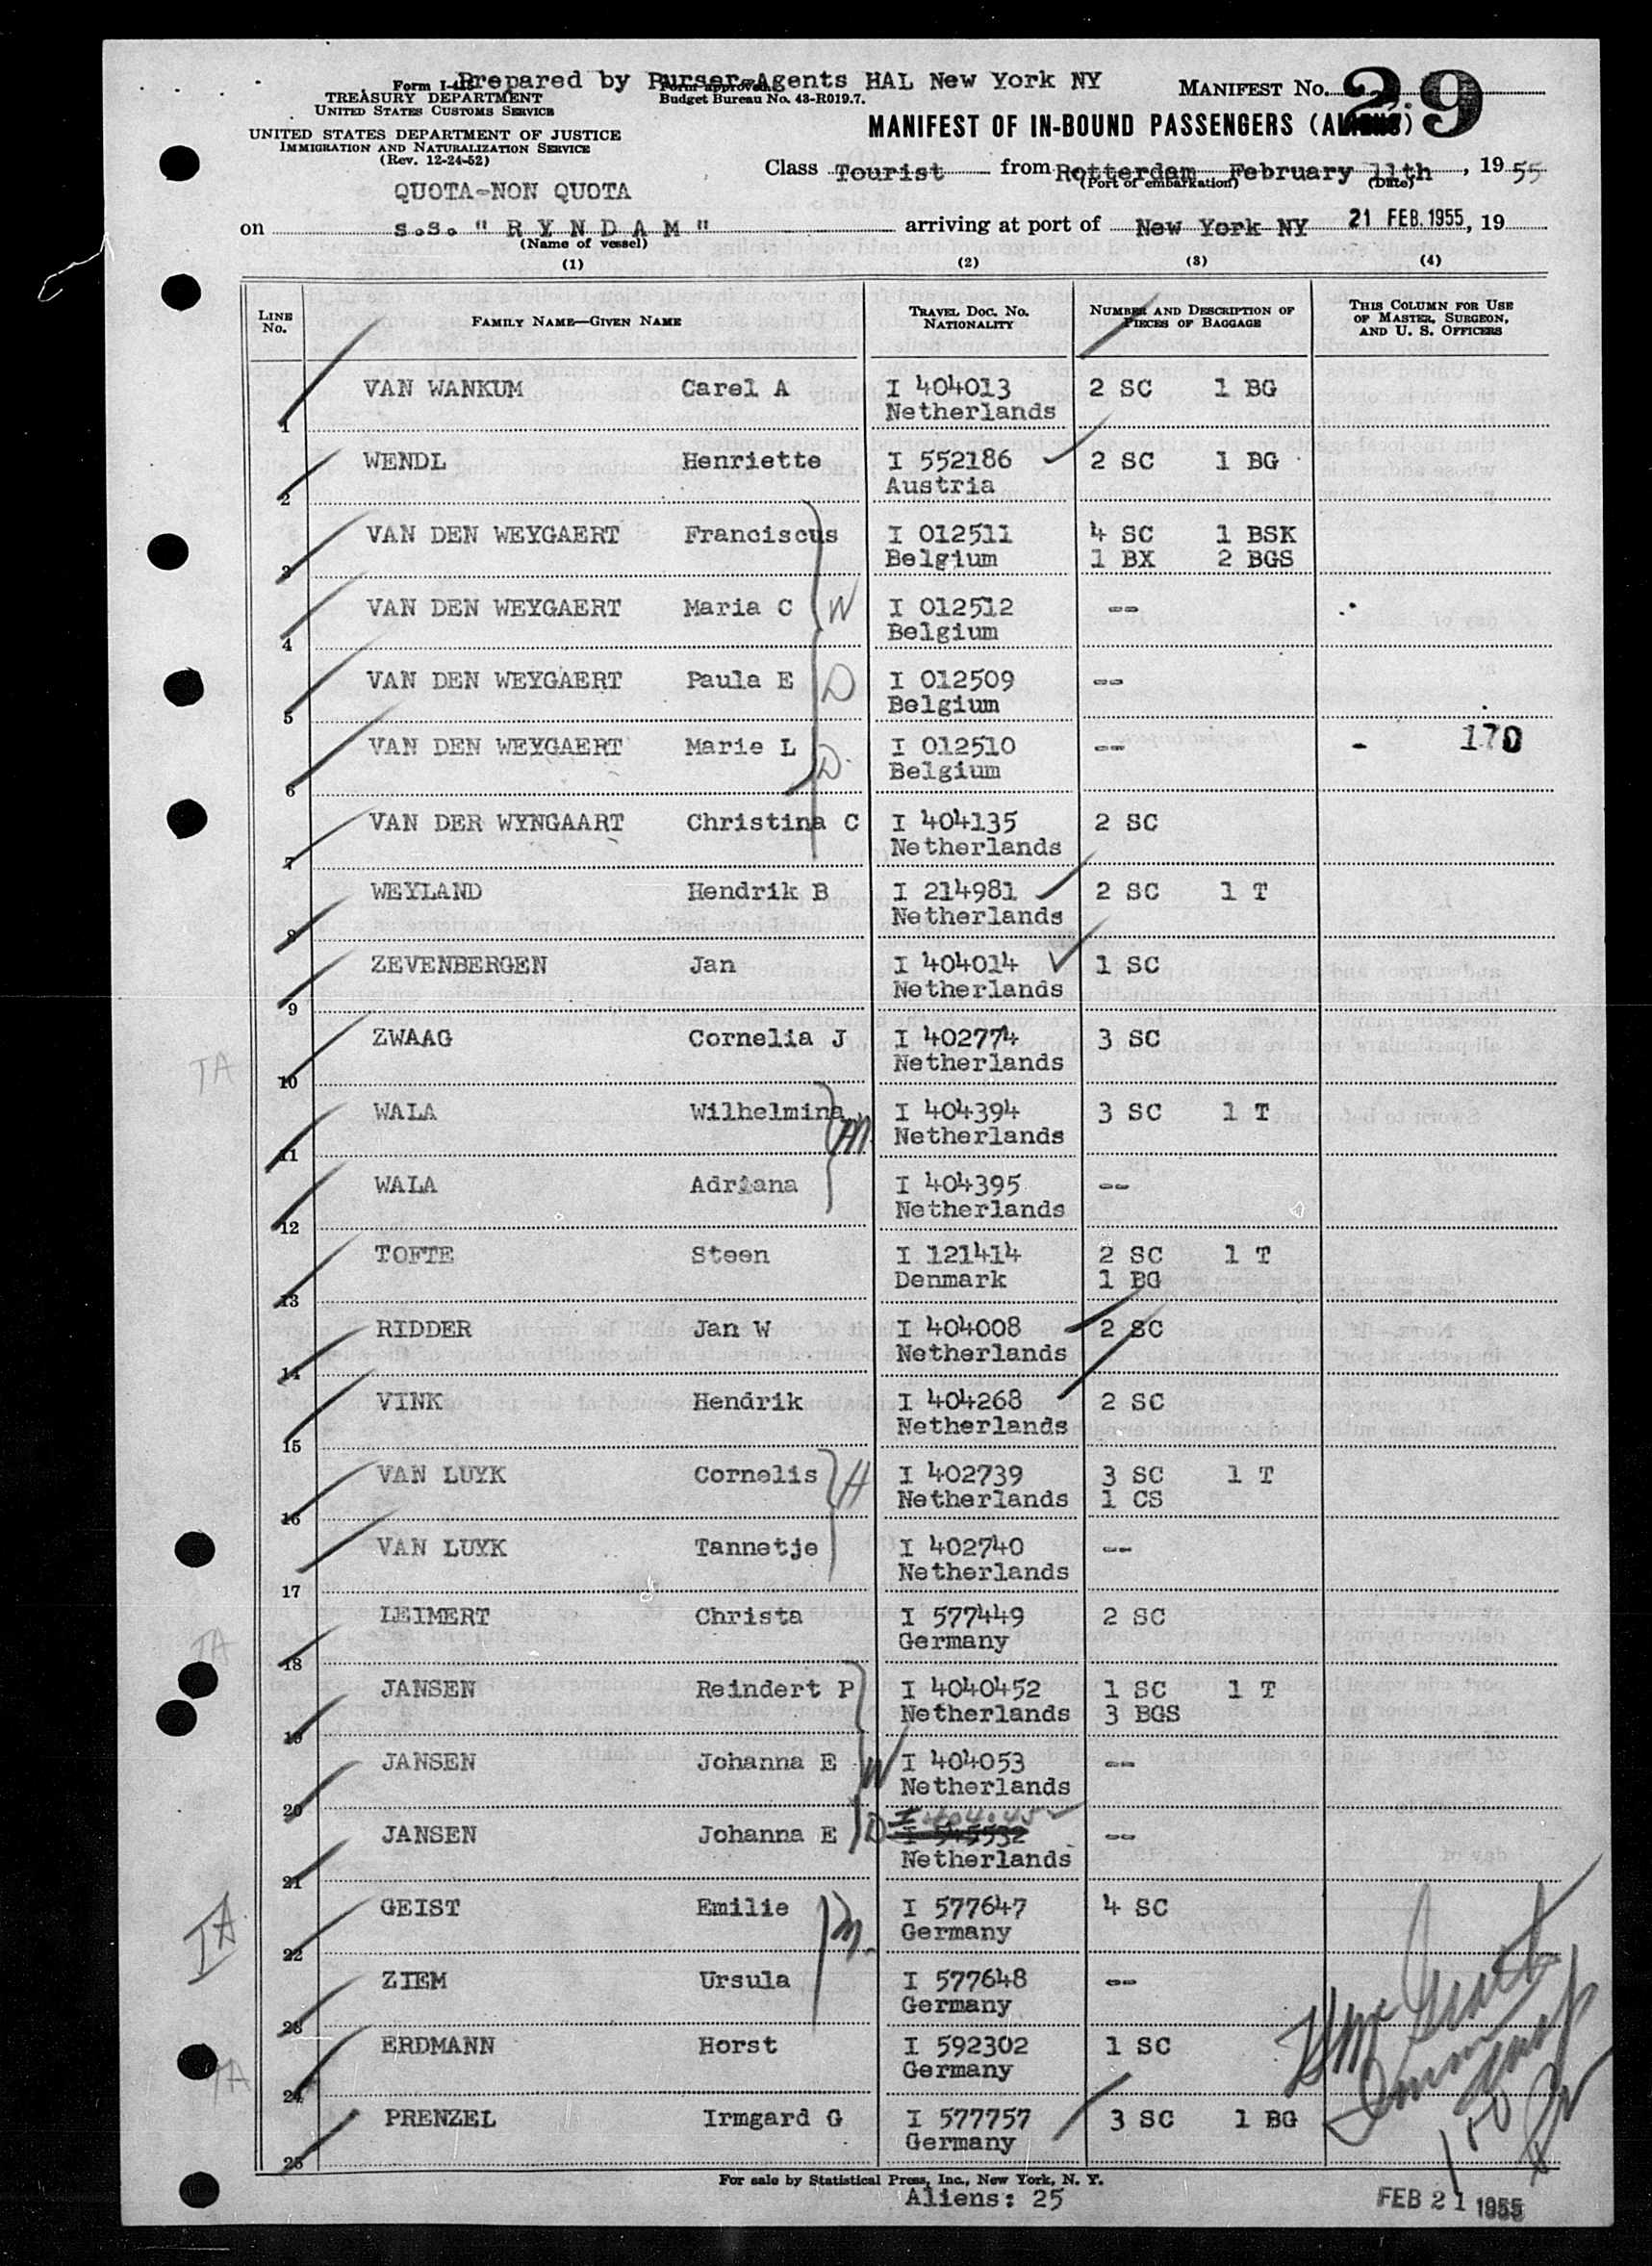 Prepared by Purser-Agents HAL New York NY
Form I-415
TREASURY DEPARTMENT
UNITED STATES CUSTOMS SERVICE
Form approved.
Budget Bureau No. 43-R019.7.
MANIFEST NO. 29
UNITED STATES DEPARTMENT OF JUSTICE
IMMIGRATION AND NATURALIZATION SERVICE
(Rev. 12-24-52)
MANIFEST OF IN-BOUND PASSENGERS (ALIENS)
Class Tourist from Rotterdam February 11th, 1955
(Port of embarkation) (Date)
QUOTA-NON QUOTA
on s.s. " R Y N D A M " arriving at port of New York NY 21 FEB. 1955, 19
(Name of vessel)
(1) (2) (3) (4)
LINE NO. FAMILY NAME—GIVEN NAME TRAVEL DOC. NO. NATIONALITY NUMBER AND DESCRIPTION OF PIECES OF BAGGAGE THIS COLUMN FOR USE OF MASTER, SURGEON, AND U. S. OFFICERS
VAN WANKUM Carel A I 404013 2 SC 1 BG
1 Netherlands
WENDL Henriette I 552186 2 SC 1 BG
2 Austria
VAN DEN WEYGAERT Franciscus I 012511 4 SC 1 BSK
3 Belgium 1 BX 2 BGS
VAN DEN WEYGAERT Maria C W I 012512 --
4 Belgium
VAN DEN WEYGAERT Paula E D I 012509 --
5 Belgium
VAN DEN WEYGAERT Marie L D. I 012510 -- - 170
6 Belgium
VAN DER WYNGAART Christina C I 404135 2 SC
7 Netherlands
WEYLAND Hendrik B I 214981 2 SC 1 T
8 Netherlands
ZEVENBERGEN Jan I 404014 1 SC
9 Netherlands
ZWAAG Cornelia J I 402774 3 SC
TA 10 Netherlands
WALA Wilhelmina M. I 404394 3 SC 1 T
11 Netherlands
WALA Adriana I 404395 --
12 Netherlands
TOFTE Steen I 121414 2 SC 1 T
13 Denmark 1 BG
RIDDER Jan W I 404008 2 SC
14 Netherlands
VINK Hendrik I 404268 2 SC
15 Netherlands
VAN LUYK Cornelis H I 402739 3 SC 1 T
16 Netherlands 1 CS
VAN LUYK Tannetje I 402740 --
17 Netherlands
LEIMERT Christa I 577449 2 SC
TA 18 Germany
JANSEN Reindert P I 4040452 1 SC 1 T
19 Netherlands 3 BGS
JANSEN Johanna E W I 404053 --
20 Netherlands
JANSEN Johanna E D I 545532 --
21 Netherlands
GEIST Emilie M. I 577647 4 SC
TA 22 Germany
ZIEM Ursula I 577648 --
23 Germany
ERDMANN Horst I 592302 1 SC
TA 24 Germany
PRENZEL Irmgard G I 577757 3 SC 1 BG
25 Germany
For sale by Statistical Press, Inc., New York, N. Y.
Aliens: 25
FEB 21 1955